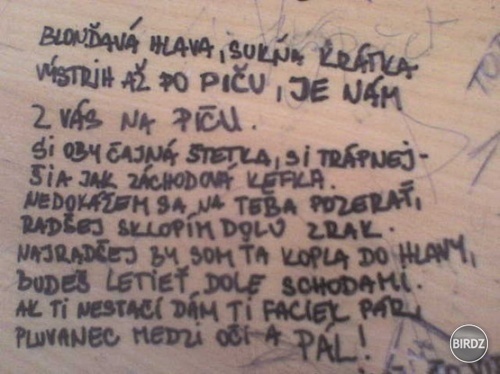 BLONĎAVÁ HLAVA, SUKŇA KRÁTKA
VÁSTRIH AŽ PO PIČU, JE NÁM
Z VÁS NA PIČU.
SI OBYČAJNÁ ŠTETKA, SI TRÁPNEJ-
ŠIA JAK ZÁCHODOVÁ KEFKA.
NEDOKÁŽEM SA NA TEBA POZERAŤ,
RADŠEJ SKLOPÍM DOLU ZRAK.
NAJRADČEJ BY SOM ŤA KOPLA DO HLAVY,
BUDEŠ LETIEŤ DOLE SCHODAMI.
AK TI NESTAČÍ DÁM TI FACIEK PÁR,
PLUVANEC MEDZI OČI A PÁL!
BIRDZ